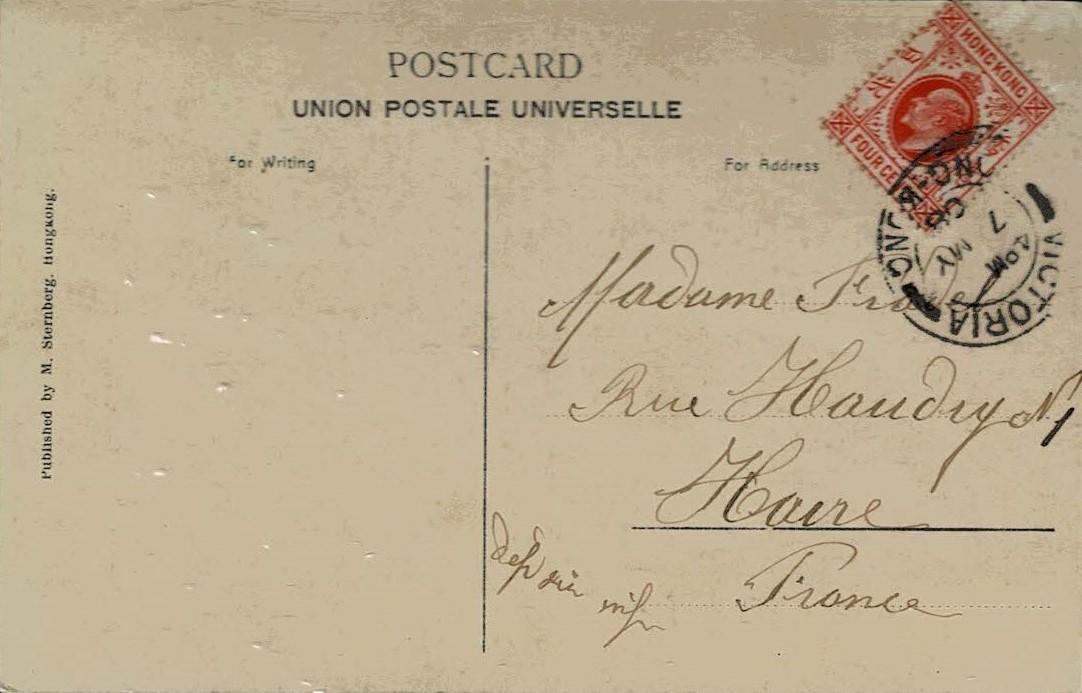 POSTCARD
UNION POSTALE UNIVERSELLE
For Writing
For Address
Published by M. Sternberg. Hongkong.
HONG KONG
FOUR CE
VICTORIA
7
MY
Madame
Rue Haudry N 1
Havre
France